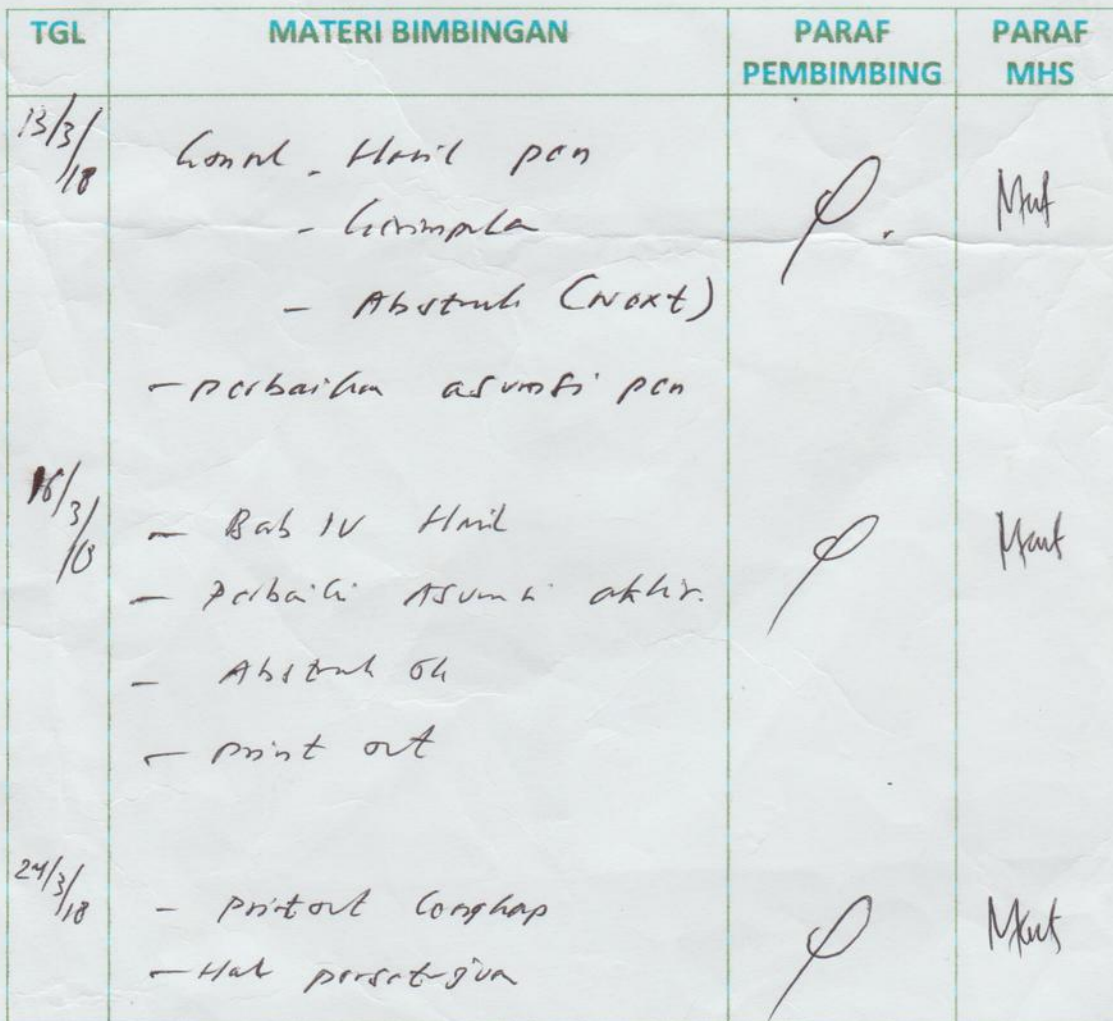 TGL MATERI BIMBINGAN PARAF PEMBIMBING PARAF MHS
13/3/18 Konsul - Hasil pen
- Kesimpula
- Abstrak (next)
- perbaikan asumsi pen
16/3/18 - Bab IV Hasil
- Perbaiki Asumsi akhir.
- Abstrak ok
- print out
24/3/18 - printout lengkap
- Hal persetujuan